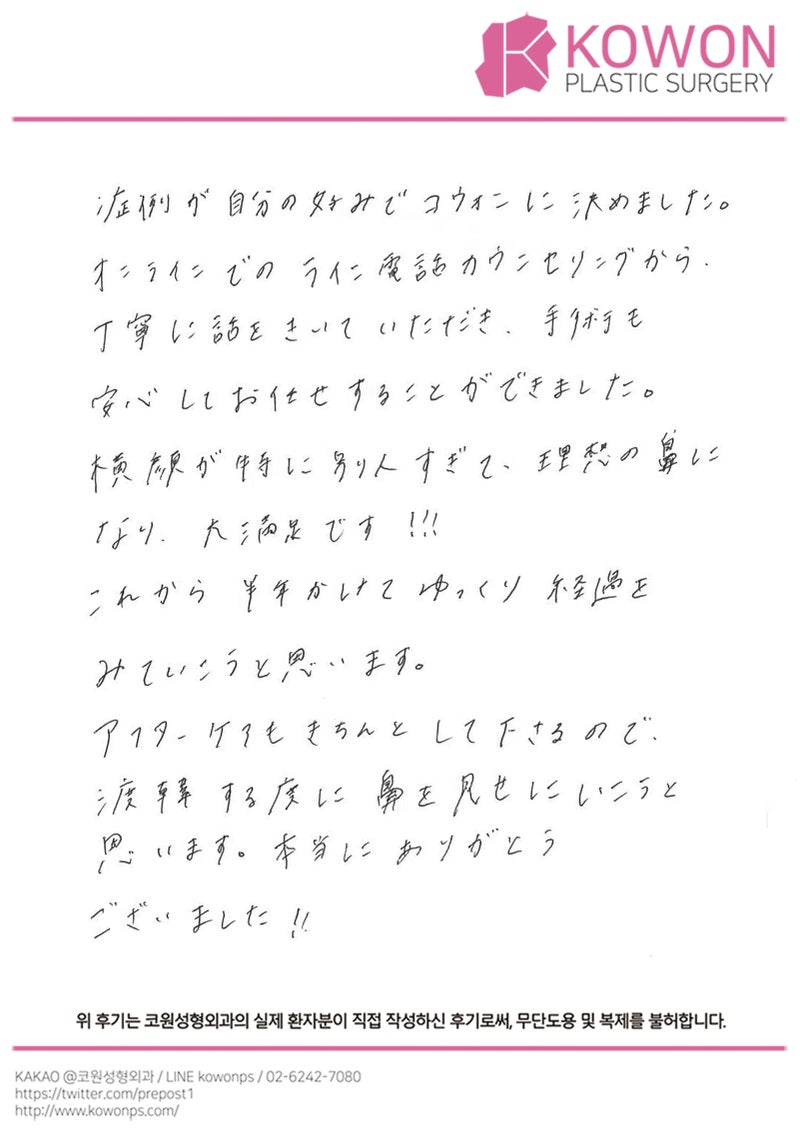 KOWON
PLASTIC SURGERY
症例が自分の好みでコウォンに決めました。
オンラインでのライン電話カウンセリングから、
丁寧に話をきいていただき、手術も
安心してお任せすることができました。
横顔が特に別人すぎて、理想の鼻に
なり、大満足です!!!
これから半年かけてゆっくり経過を
みていこうと思います。
アフターケアもきちんとして下さるので、
渡韓する度に鼻を見せにいこうと
思います。本当にありがとう
ございました!!
위 후기는 코원성형외과의 실제 환자분이 직접 작성하신 후기로써, 무단도용 및 복제를 불허합니다.
KAKAO @코원성형외과 / LINE kowonps / 02-6242-7080
https://twitter.com/prepost1
http://www.kowonps.com/